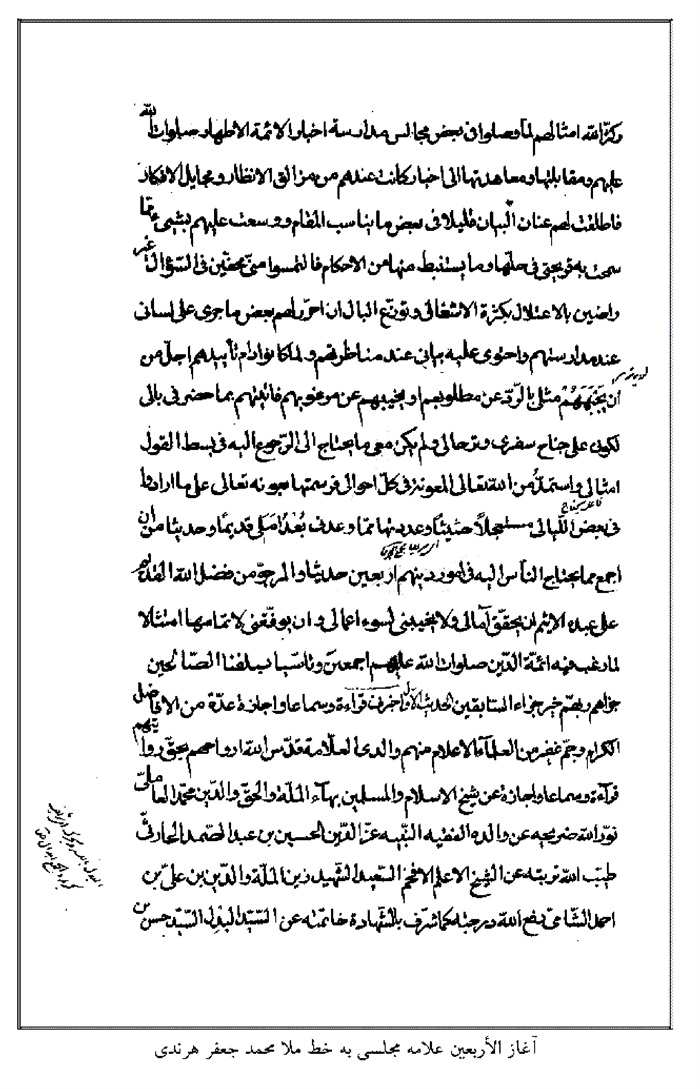 وكثّر الله امثالهم لمّا وصلوا فى بعض مجالس مدارسة اخبار الائمة الاطهار صلوات الله
عليهم ومقابلتها ومعاهدتها الى اخبار كانت عندهم من مزالق الانظار و مخايل الافكار
فاطلقت لهم عنان البيان قليلا فى بعض ما يناسب المقام ووسعت عليهم بشىء ممّا
سمحت به قريحتى فى حلّها وما يستنبط منها من الاحكام فالتمسوا منّى محفّين فى السّؤال غير
راضين بالاعتلال بكثرة الاشغال وتوزّع البال ان احرّر لهم بعض ما جرى على لسانى
عند مدارستهم واحتوى عليه بيانى عند مناظرتهم ولمّا كانوا دام تأييدهم اجلّ من
ان يَجْبَهَهُمْ مثلى بالرّد عن مطلوبهم او يخيبهم عن مرغوبهم فاتيتهم بما حضر فى بالى
لكونى على جناح سفرى وترحالى ولم يكن معى ما يحتاج الى الرّجوع اليه فى بسط القول
امثالى واستمدّ من الله تعالى المعونة فى كلّ احوالى فرسمتها بعونه تعالى على ما ارادوا
فى بعض اللّيالى مستعجلاً حثيثا وعددتها ممّا وعدنى بُعْدُ امَلى قديمًا وحديثا من ان
اجمع مما يحتاج الناس اليه فى امور دينهم اربعين حديثا والمرجوّ من فضل الله القديم
على عبده الاثيم ان يحقّق آمالى ولا يخيبنى لسوء اعمالى و ان يوفّقنى لاتمامها امتثالا
لما رغب فيه ائمّة الدّين صلوات الله عليهم اجمعين وتأسّيا بسلفنا الصّالحين
جزاهم ربهّم خير جزاء السّابقين الحديث الاوّل اخبرنى قراءة وسماعا واجازة عدّة من الافاضل
الكرام وجمّ غفير من العلماء الاعلام منهم والدى العلّامة قدّس الله ارواحهم بحقّ روايتهم
قراءة وسماعا واجازة عن شيخ الاسلام والمسلمين بهآء الملّة والحقّ والدّين محمّد العاملىّ
نوّر الله ضريحه عن والده الفقيه النّبيه عزّ الدّين الحسين بن عبد الصّمد الحارثىّ
طيّب الله تربته عن الشّيخ الاعلم الافخم السّعيد الشّهيد زين الملّة والدّين بن علىّ بن
احمد الشّامى رفع الله درجته كما شرّف بالشّهادة خاتمته عن السّيّد البدل السّيّد حسن بن
آغاز الأربعین علامه مجلسی به خط ملا محمد جعفر هرندی